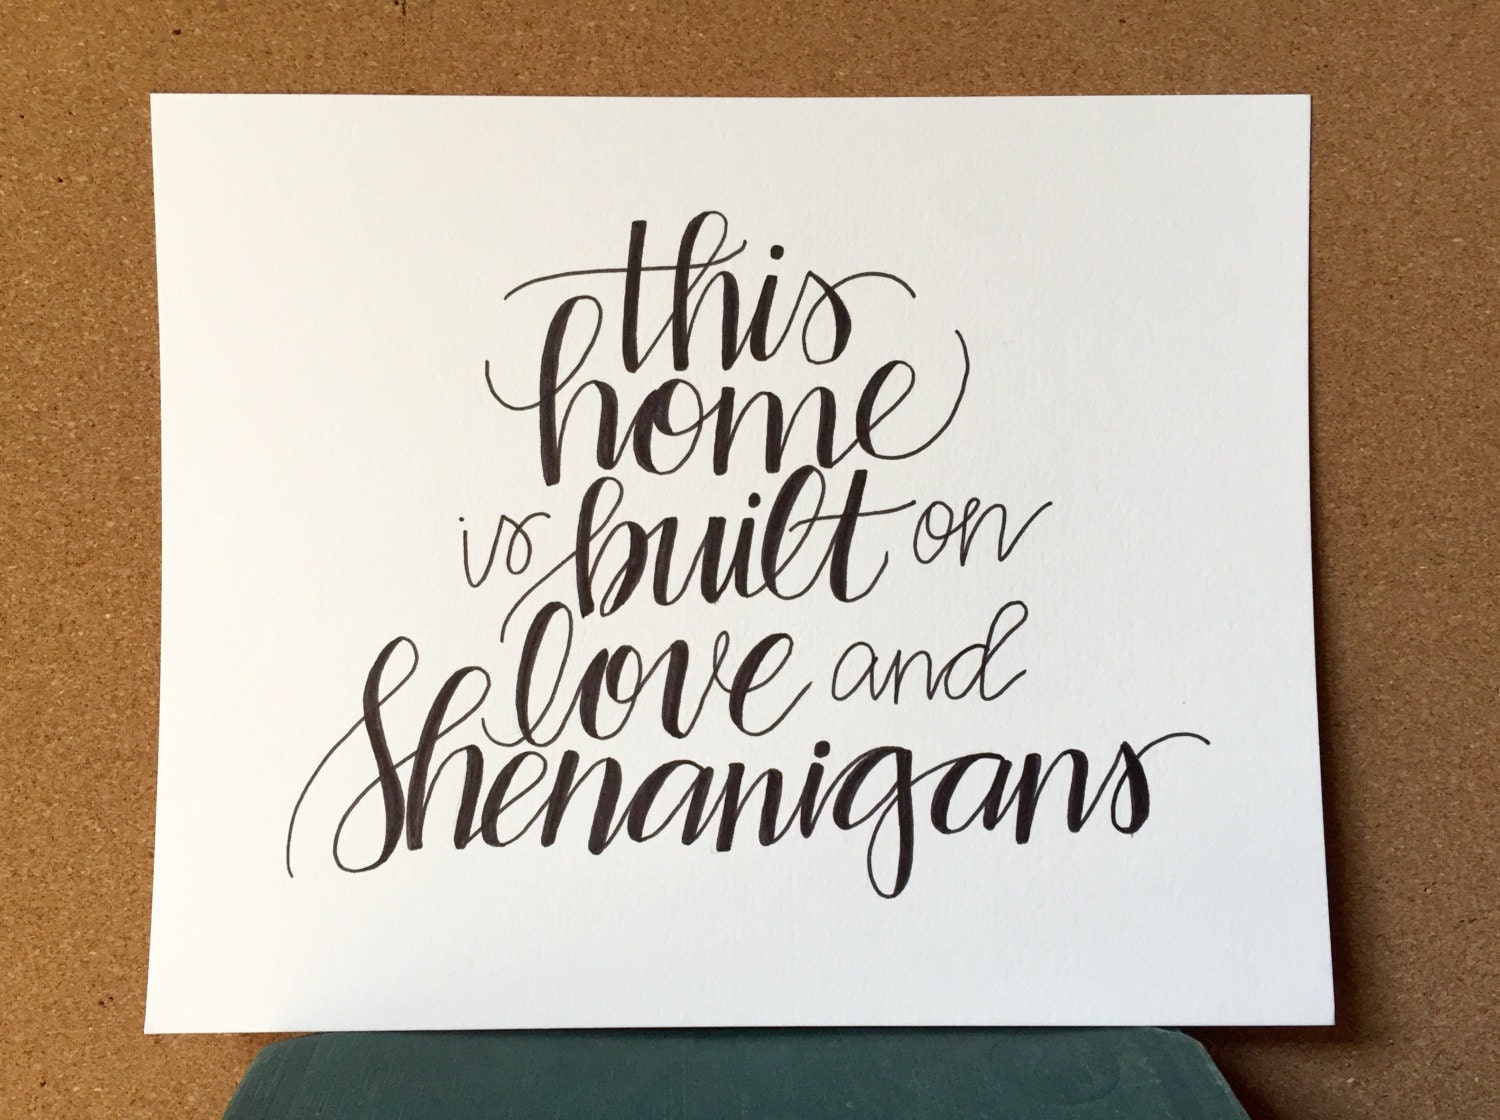 this
home
is built on
love and
Shenanigans